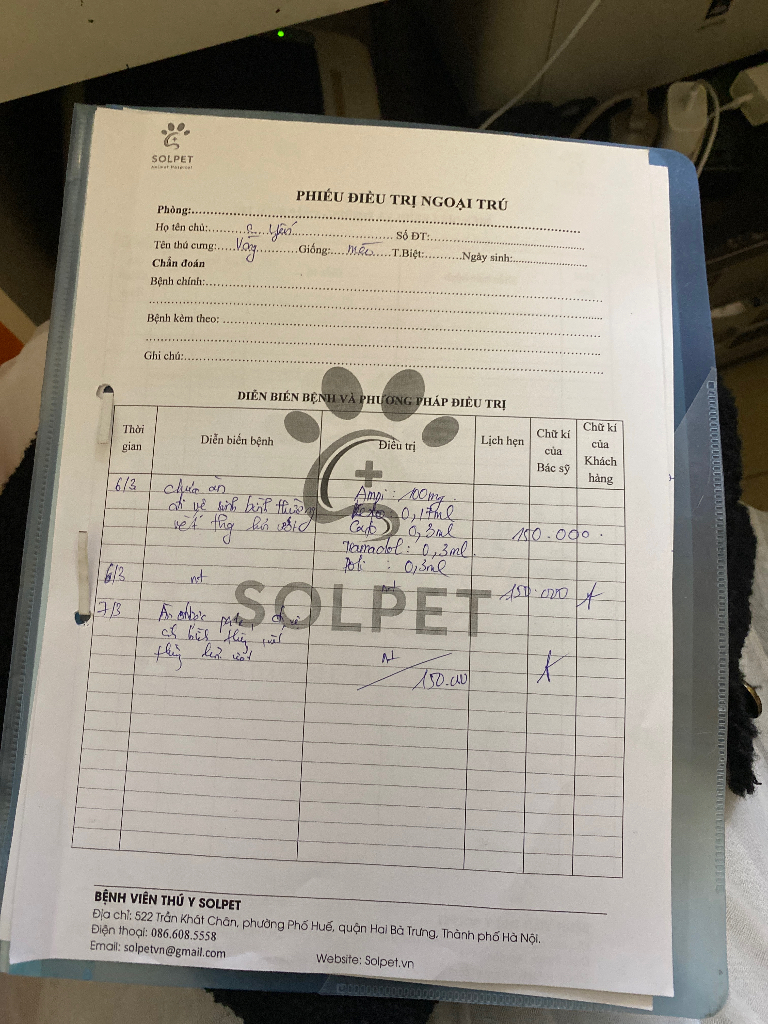 SOLPET
Animal Hospital
PHIẾU ĐIỀU TRỊ NGOẠI TRÚ
Phòng:
Họ tên chủ: Yến Số ĐT:
Tên thú cưng: Vàng Giống: mèo T.Biệt: Ngày sinh:
Chẩn đoán
Bệnh chính:
Bệnh kèm theo:
Ghi chú:
DIỄN BIẾN BỆNH VÀ PHƯƠNG PHÁP ĐIỀU TRỊ
Thời gian Diễn biến bệnh Điều trị Lịch hẹn Chữ kí của Bác sỹ Chữ kí của Khách hàng
6/3 chưa ăn Ampi: 100mg
đi vệ sinh bình thường : 0,17ml
0,3ml 150.000
Tramadol: 0,3ml
: 0,3ml
6/3 nt nt 150.000
7/3 Ăn được
nt
150.000
SOLPET
BỆNH VIỆN THÚ Y SOLPET
Địa chỉ: 522 Trần Khát Chân, phường Phố Huế, quận Hai Bà Trưng, Thành phố Hà Nội.
Điện thoại: 086.608.5558
Email: solpetvn@gmail.com Website: Solpet.vn